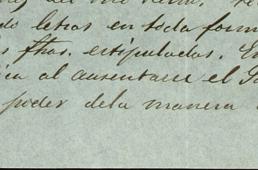 do letras en toda forma
s fhas. estipuladas. E
al ausentarse el S
poder dela manera